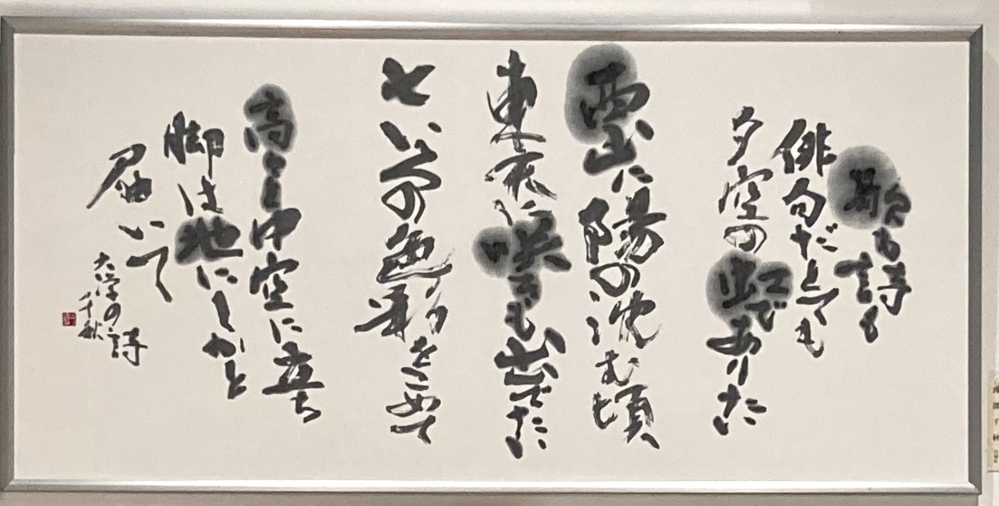 歌も詩も
俳句だとても
夕空の虹でありたい
西山に陽の沈む頃
東天に咲きも出でたい
七いろの色彩をこめて
高々と中空に立ち
脚は地にしかと
届いて
大学の詩
千秋